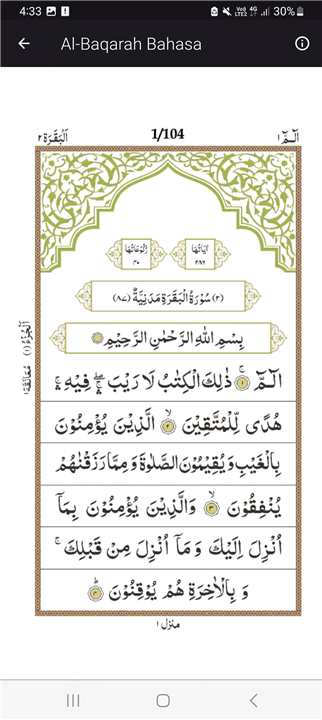 4:33 Vo) 4G LTE2 30%
Al-Baqarah Bahasa
البقرة ٢ 1/104 الٓمّٓ ١
رُكُوْعَاتُهَا ٤٠ اٰيَاتُهَا ٢٨٦
(٢) سُوْرَةُ الْبَقَرَةِ مَدَنِيَّةٌ (٨٧)
بِسْمِ اللهِ الرَّحْمٰنِ الرَّحِيْمِ
الٓمّٓ ۚ ١ ذٰلِكَ الْكِتٰبُ لَا رَيْبَ ۛ فِيْهِ ۛ
هُدًى لِّلْمُتَّقِيْنَ ۙ ٢ الَّذِيْنَ يُؤْمِنُوْنَ
بِالْغَيْبِ وَيُقِيْمُوْنَ الصَّلٰوةَ وَمِمَّا رَزَقْنٰهُمْ
يُنْفِقُوْنَ ۙ ٣ وَالَّذِيْنَ يُؤْمِنُوْنَ بِمَآ
اُنْزِلَ اِلَيْكَ وَمَآ اُنْزِلَ مِنْ قَبْلِكَ ۚ
وَبِالْاٰخِرَةِ هُمْ يُوْقِنُوْنَ ؕ ٤
اَلْجُزْءُ (١) مُعَانَقَة ١
منزل ١